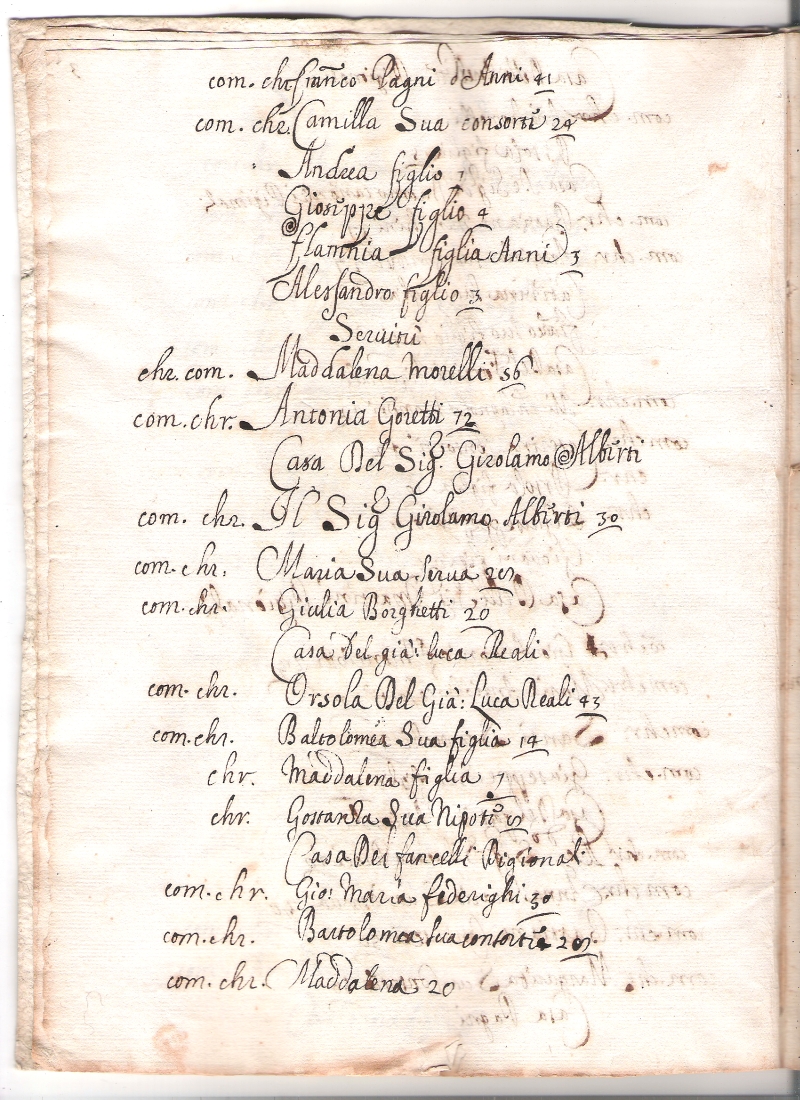 com. chr. franco Pagni d'Anni 41
com. chr. Camilla Sua consorte 24
Andrea figlio 7
Gioseppe figlio 4
flaminia figlia Anni 3
Alessandro figlio 3
Servitù
chr. com. Maddalena morelli 56
com. chr. Antonia Goretti 72
Casa Del Sig.r Girolamo Alberti
com. chr. Il Sig.r Girolamo Alberti 30
com. chr. Maria Sua serva
com. chr. Giulia Borghetti 20
Casa Del già: luca Reali
com. chr. Orsola Del Già: Luca Reali 43
com. chr. Bartolomea Sua figlia 14
chr. Maddalena figlia 7
chr. Gostanza Sua Nipote
Casa Dei fancelli Pigionali
com. chr. Gio: Maria federighi 30
com. chr. Bartolomea Sua consorte
com. chr. Maddalena 20